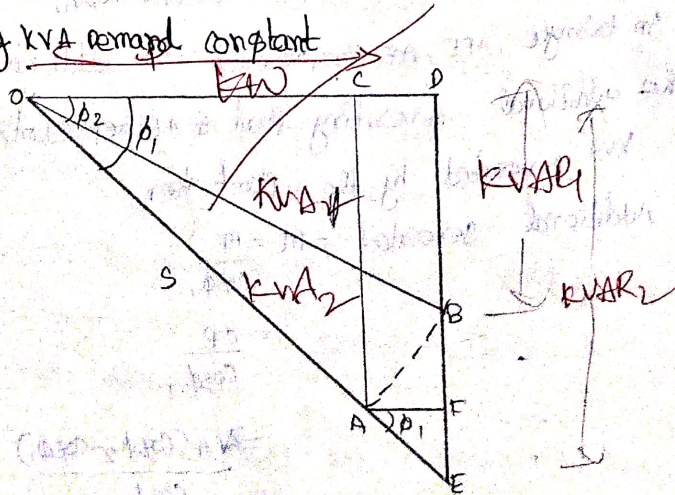 KVA Demand constant
KW
O C D
φ2 φ1
KVA1 KVAR1
S KVA2 KVAR2
B
A φ1 F
E